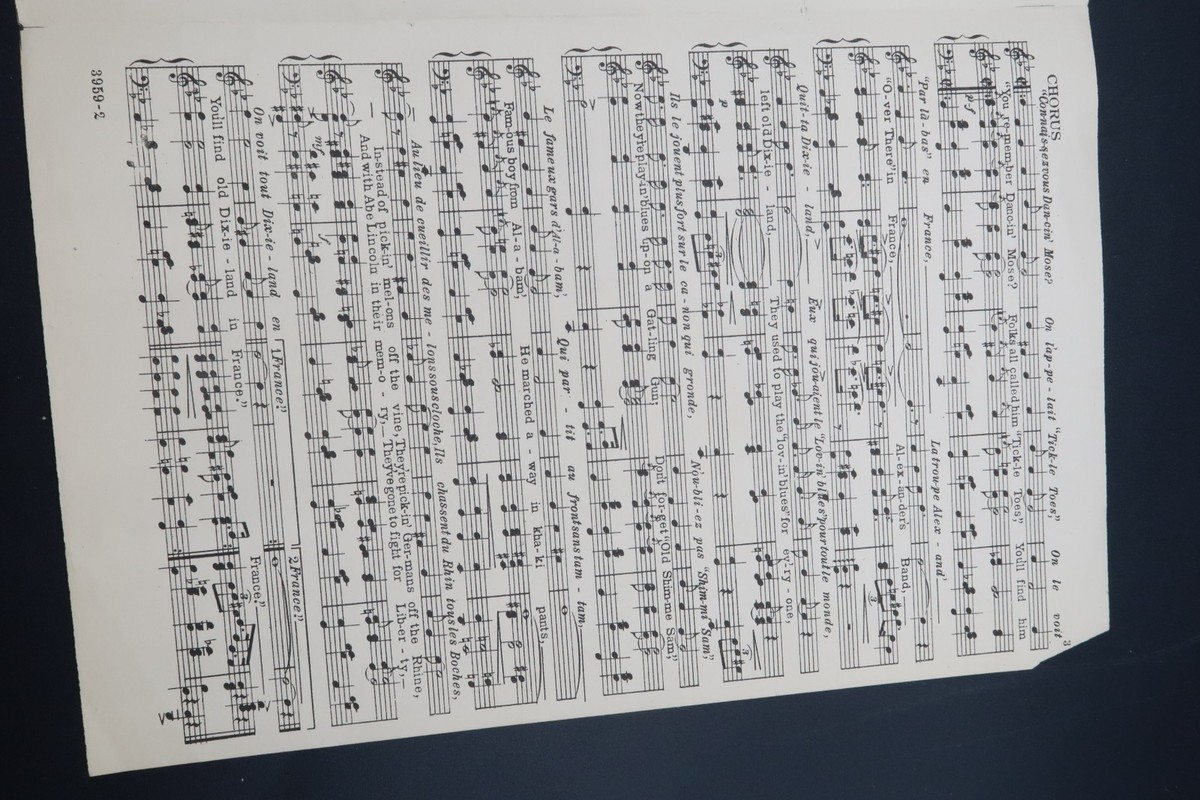 3
CHORUS
"Connais-sez vous Dan-cin' Mose? On l'ap-pe-lait "Tick-le Toes," On le voit
"You re-mem-ber Danc-in' Mose? Folks all called him "Tick-le Toes," You'll find him
pf
"Par là-bas" en France, La trou-pe Alex-and'
"O-ver There" in France, Al-ex-an-der's Band,
3
Quit-ta Dix-ie-land, Eux qui jou-aient le "Lov-in' blues" pour tout le monde,
left old Dix-ie-land, They used to play the "lov-in' blues" for ev'-ry-one,
p
3
3
Ils le jouent plus fort sur le ca-non qui gronde, N'ou-bli-ez pas "Shim-mi Sam",
Now they're play-in' blues up-on a Gat-ling Gun; Don't for-get "Old Shim-me Sam,"
Le fameux gars d'Al-a-bam'; Qui par-tit au front sans tam-tam,
Fam-ous boy from Al-a-bam'; He marched a-way in kha-ki pants,
Au lieu de cueillir des me-lons sous cloche, Ils chassent du Rhin tous les Boches,
In-stead of pick-in' mel-ons off the vine, They're pick-in' Ger-mans off the Rhine,
And with Abe Lincoln in their mem-o-ry, They've gone to fight for Lib-er-ty,
mf
f
1 France." 2 France."
On voit tout Dix-ie-land en
You'll find old Dix-ie-land in France." France."
3
3959-2